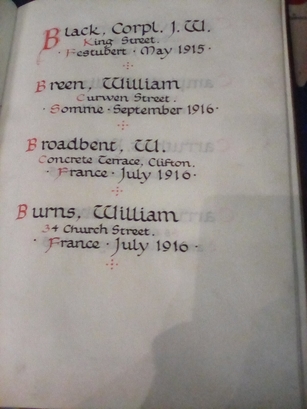 Black, Corpl. J. W.
King Street.
· Festubert · May 1915 ·
Breen, William
Curwen Street.
· Somme · September 1916 ·
Broadbent, W.
Concrete Terrace, Clifton.
· France · July 1916 ·
Burns, William
34 Church Street.
· France · July 1916 ·